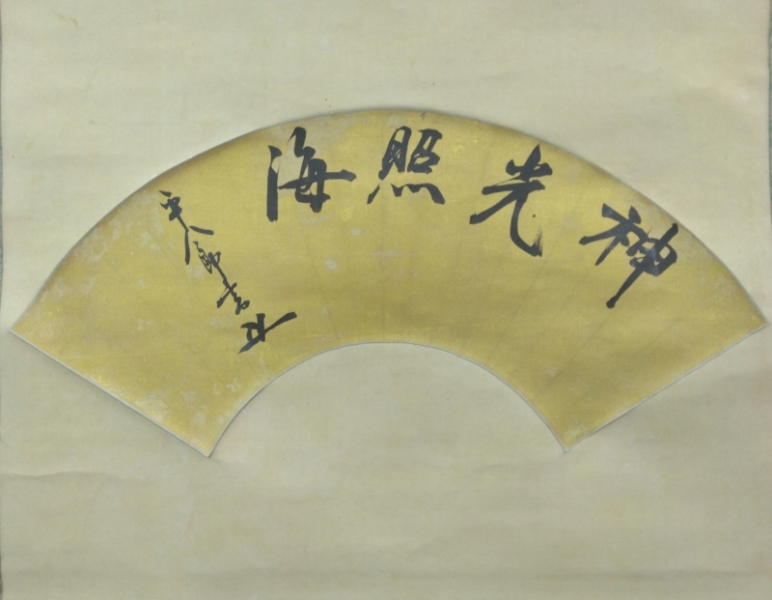 神光照海
平八郎書